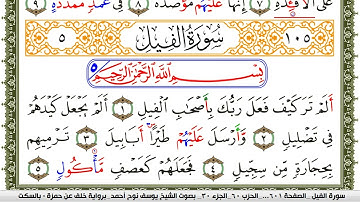 عَلَى الْأَفْـِٔدَةِ ٧ إِنَّهَا عَلَيْهُم مُّوصَدَةٌ ٨ فِى عَمَدٍ مُّمَدَّدَةٍ ٩
١٠٥ سُورَةُ الْفِيلِ ٥
بِسْمِ اللَّهِ الرَّحْمَٰنِ الرَّحِيمِ
أَلَمْ تَرَ كَيْفَ فَعَلَ رَبُّكَ بِأَصْحَابِ الْفِيلِ ١ أَلَمْ يَجْعَلْ كَيْدَهُمْ
فِي تَضْلِيلٍ ٢ وَأَرْسَلَ عَلَيْهُمْ طَيْرًا أَبَابِيلَ ٣ تَرْمِيهِم
بِحِجَارَةٍ مِّن سِجِّيلٍ ٤ فَجَعَلَهُمْ كَعَصْفٍ مَّأْكُولٍ ٥
سورة الفيل _الصفحة ٦٠١ ... الحزب ٦٠_الجزء ٣٠_ بصوت الشيخ يوسف نوح أحمد_برواية خلف عن حمزة - بالسكت